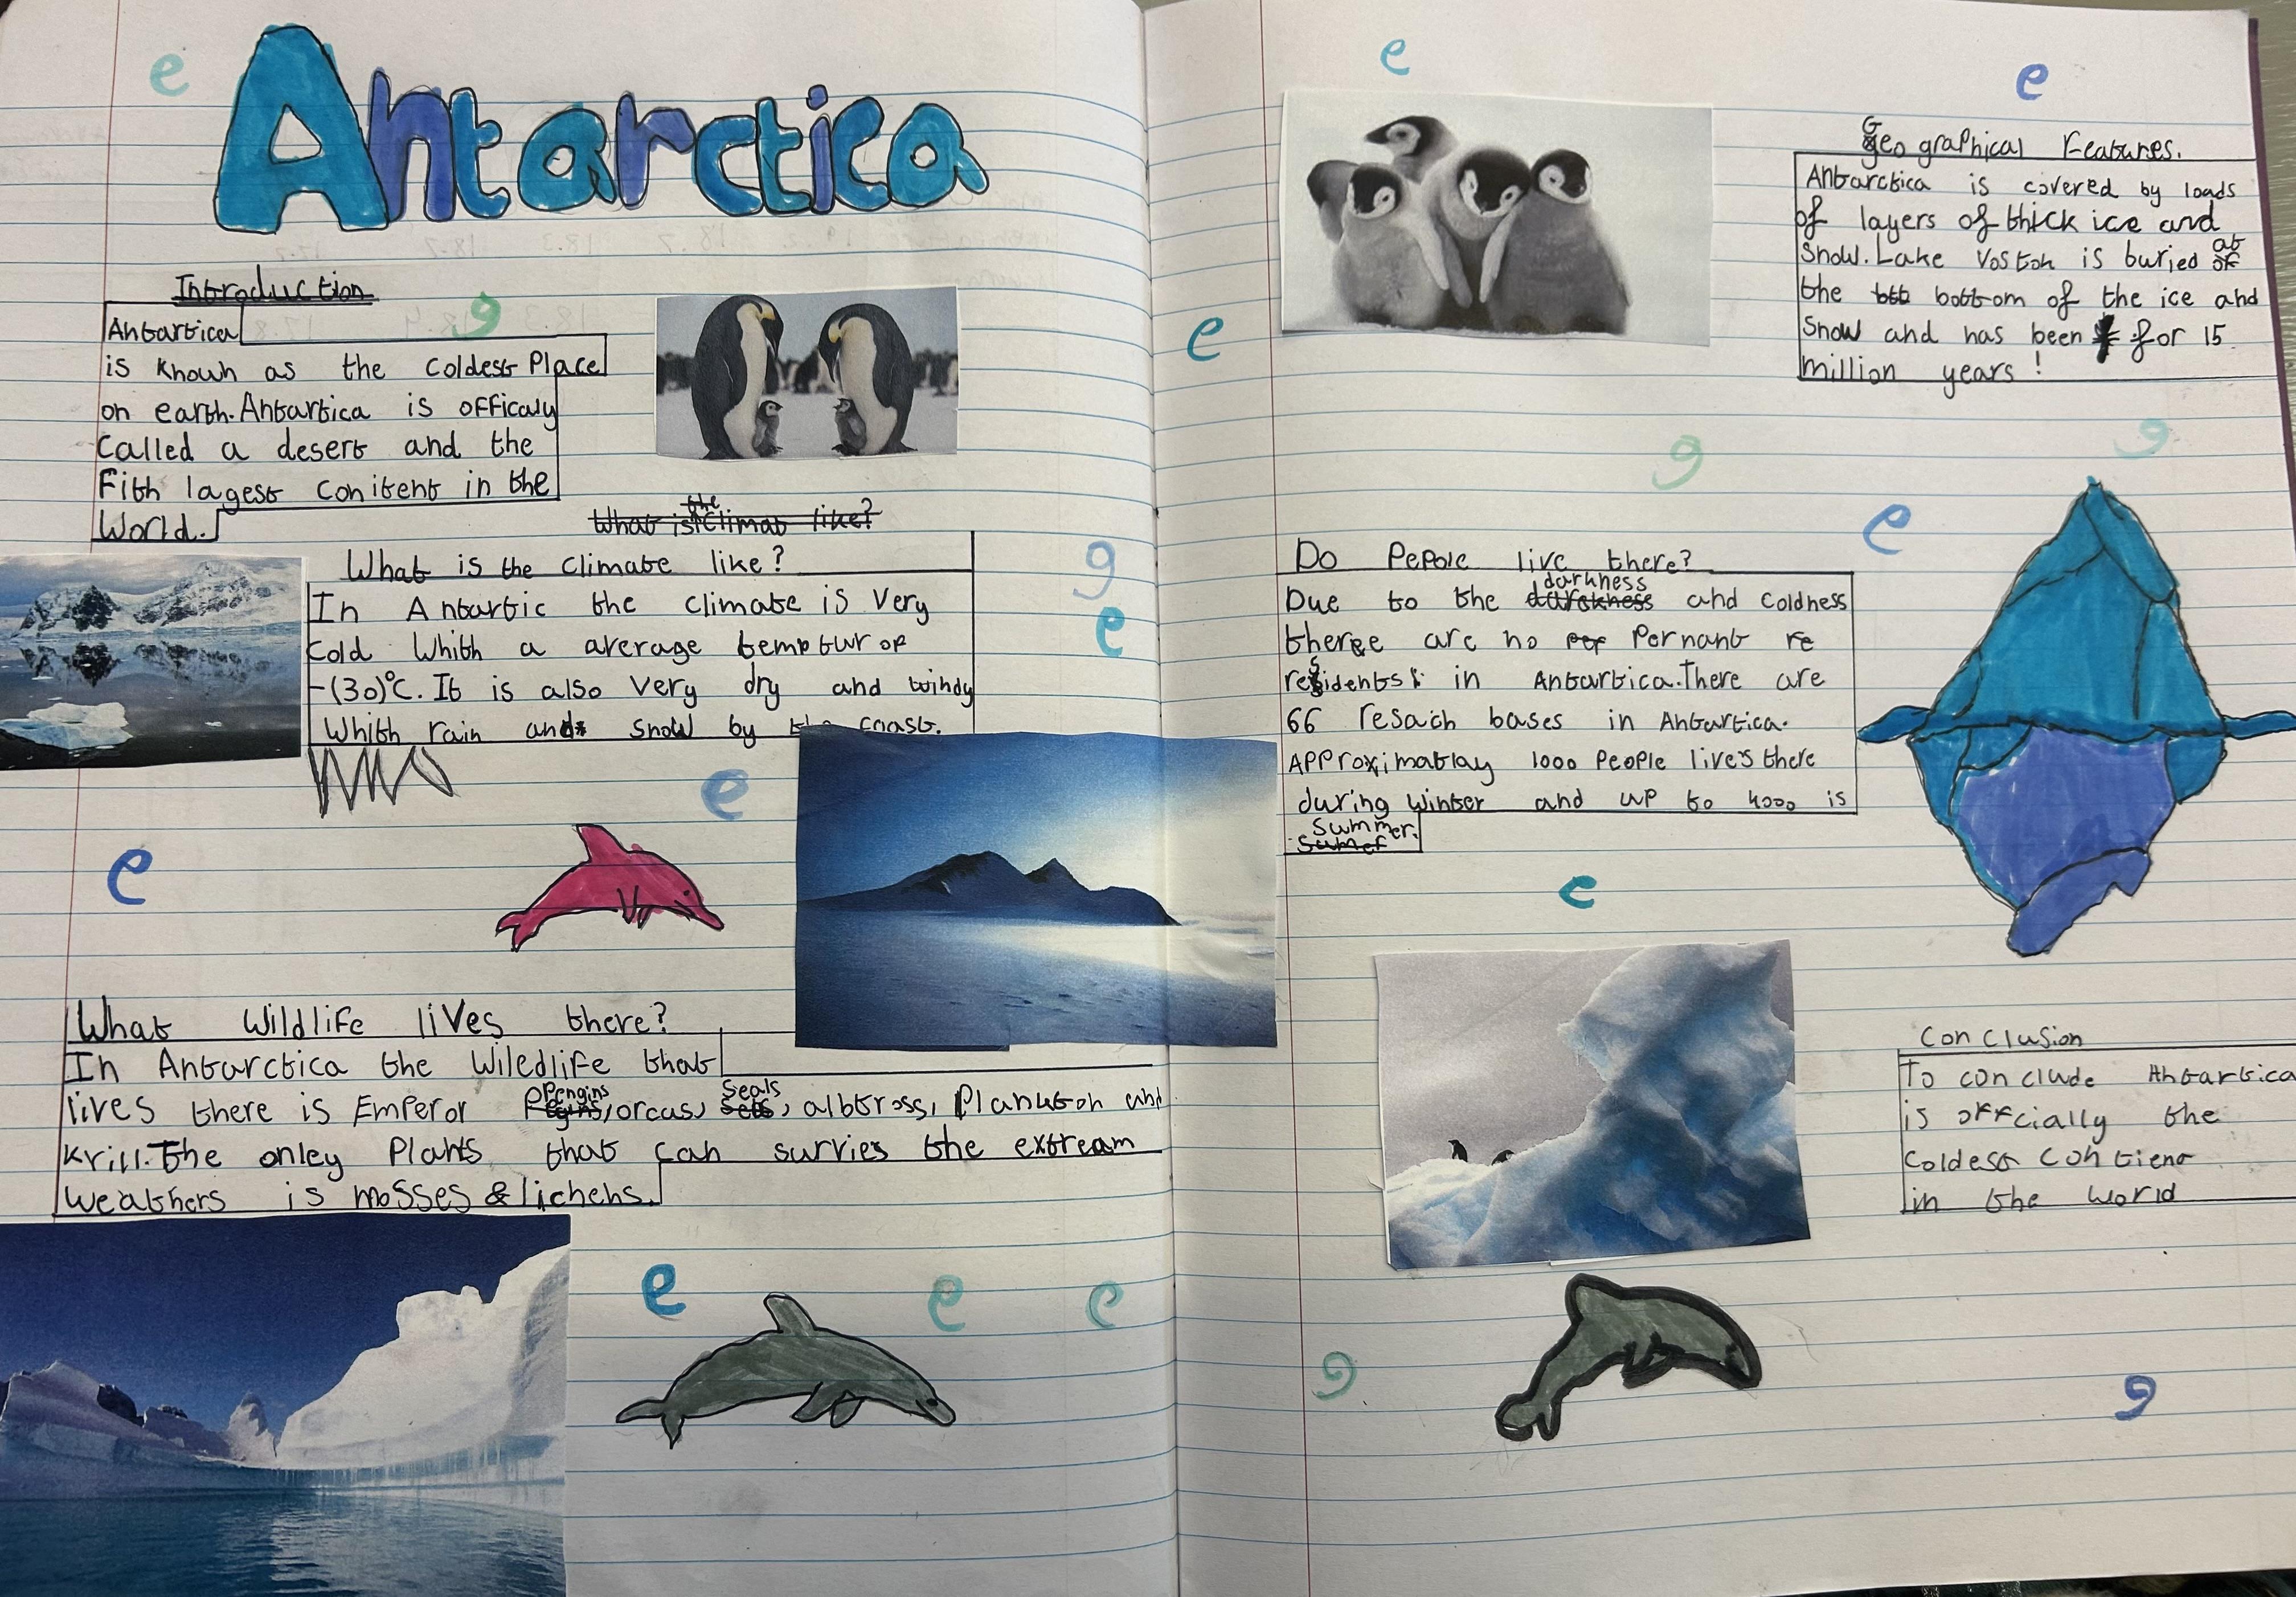 Antarctica
Introduction
Antartica
is known as the coldest Place
on earth. Antartica is officaly
called a desert and the
Fith lagest conitent in the
World.
What is the Climat like?
What is the climate like?
In Antartic the climate is very
cold Whith a average temptur of
-(30)°C. It is also very dry and windy
Whith rain and snow by the coast.
What Wildlife lives there?
In Antarctica the Wiledlife that
lives there is Emperor Pengins, orcas, Seals, albtross, Plankton and
krill. The onley Plants that can survies the extream
weathers is mosses & lichens.
Geographical Features.
Antarctica is covered by loads
of layers of thick ice and
Snow. Lake Vostok is buried at
the bottom of the ice and
Snow and has been for 15
million years!
Do Pepole live there?
Due to the darkness and coldness
there are no Pernant re
residents in Antartica. There are
66 resach bases in Antartica.
Approximatlay 1000 People lives there
during winter and up to 4000 is
summer.
Conclusion
To conclude Antartica
is offcially the
coldest contient
in the world